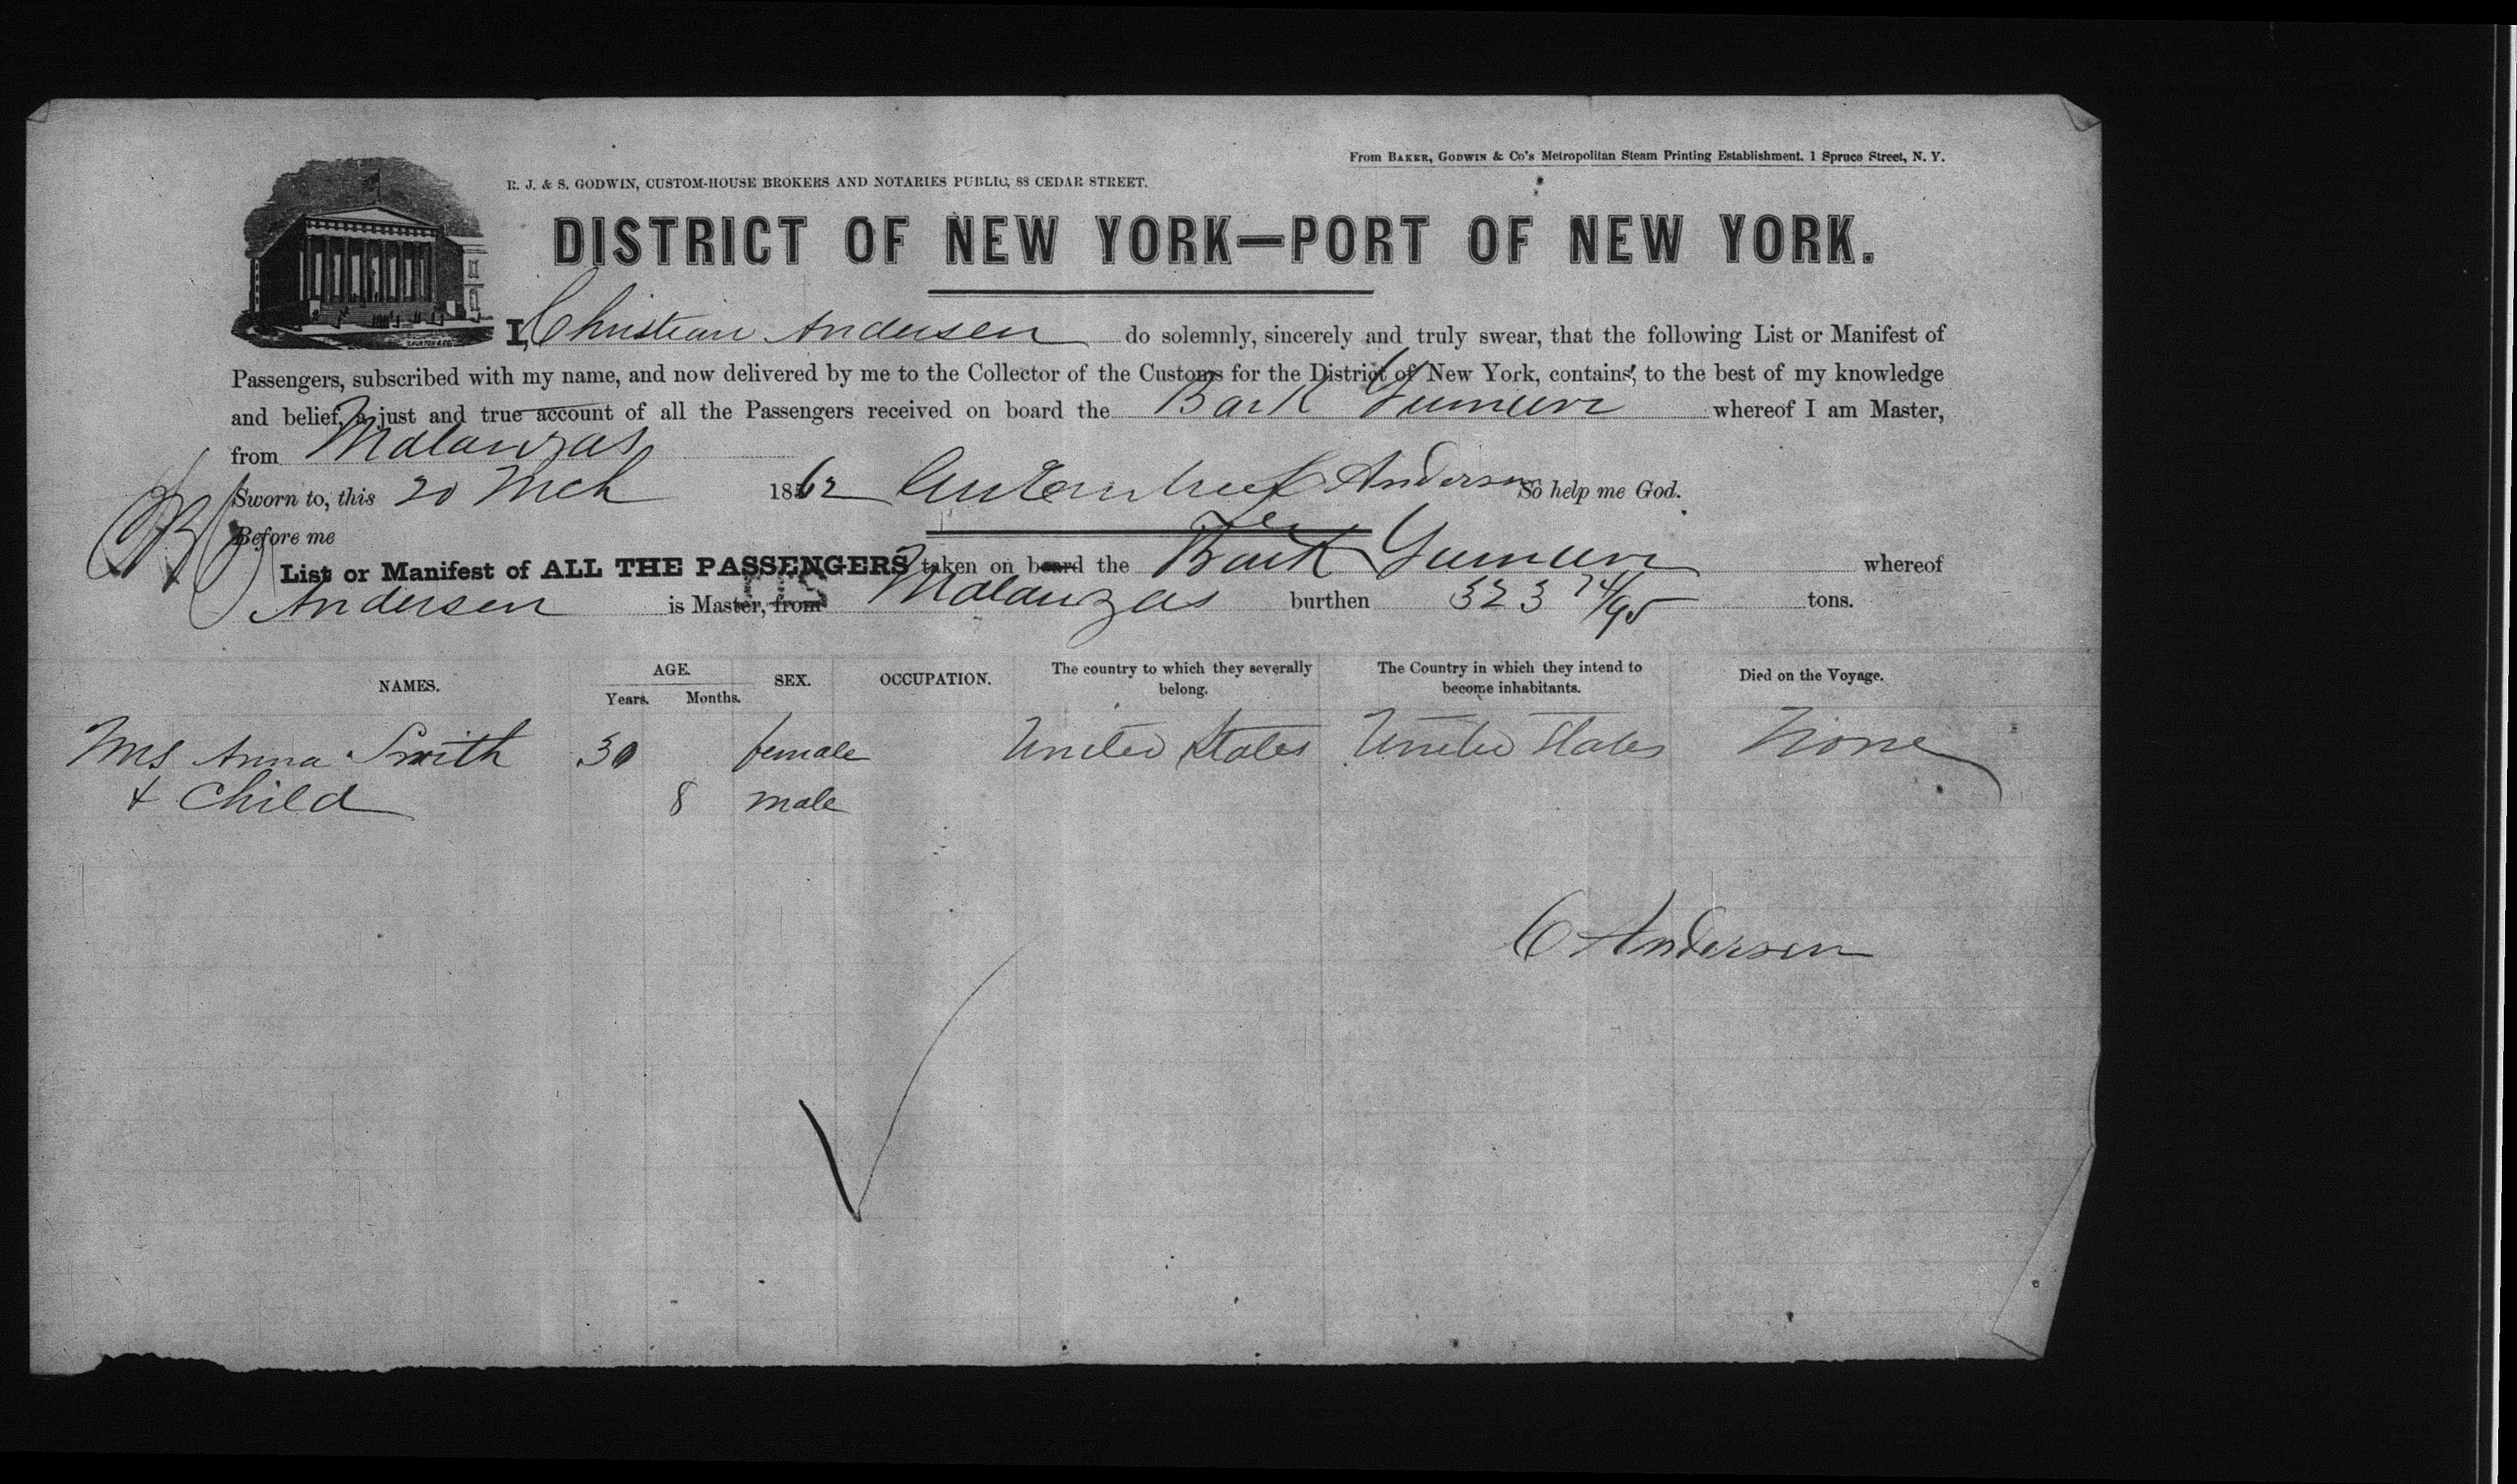 From BAKER, GODWIN & Co's Metropolitan Steam Printing Establishment, 1 Spruce Street, N. Y.
R. J. & S. GODWIN, CUSTOM-HOUSE BROKERS AND NOTARIES PUBLIC, 88 CEDAR STREET.
DISTRICT OF NEW YORK—PORT OF NEW YORK.
I, Christian Andersen do solemnly, sincerely and truly swear, that the following List or Manifest of
Passengers, subscribed with my name, and now delivered by me to the Collector of the Customs for the District of New York, contains, to the best of my knowledge
and belief, a just and true account of all the Passengers received on board the Bark Yumuri whereof I am Master,
from Matanzas
Sworn to, this 20 Mch 1862 Andersen So help me God.
Before me
List or Manifest of ALL THE PASSENGERS taken on board the Bark Yumuri whereof
Andersen is Master, from Matanzas burthen 323 74/95 tons.
NAMES. AGE. SEX. OCCUPATION. The country to which they severally belong. The Country in which they intend to become inhabitants. Died on the Voyage.
Years. Months.
Mrs Anna Smith 30 female United States United States None
& Child 8 male
C Andersen